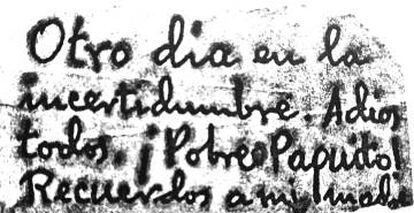 Otro dia en la
incertidumbre. Adios
todos. ¡Pobre Papuito!
Recuerdos a mi